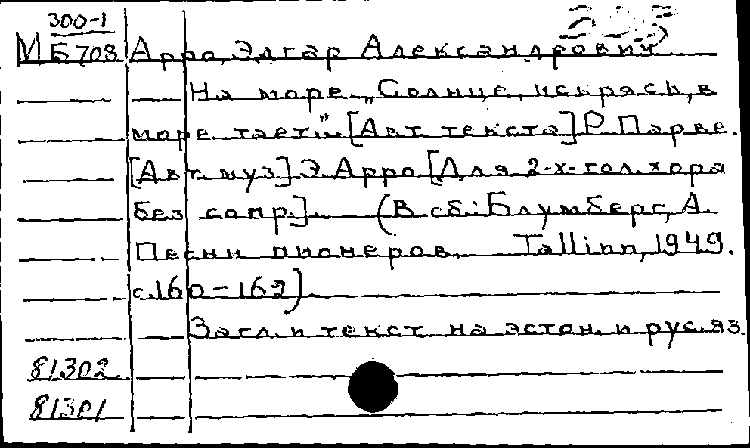 300-1
МБ708 Арро, Элгар Александрович
На море. „Солнце, искрясь, в
море тает." [Авт. текста] Р. Парве.
[Авт. муз.] Э. Арро [Для 2-х-гол. хора
без сопр.]. (В сб.: Блумберг, А.
Песни пионеров. Tallinn, 1949.
с. 160-162)
Загл. и текст на эстон. и рус. яз.
81302
81301